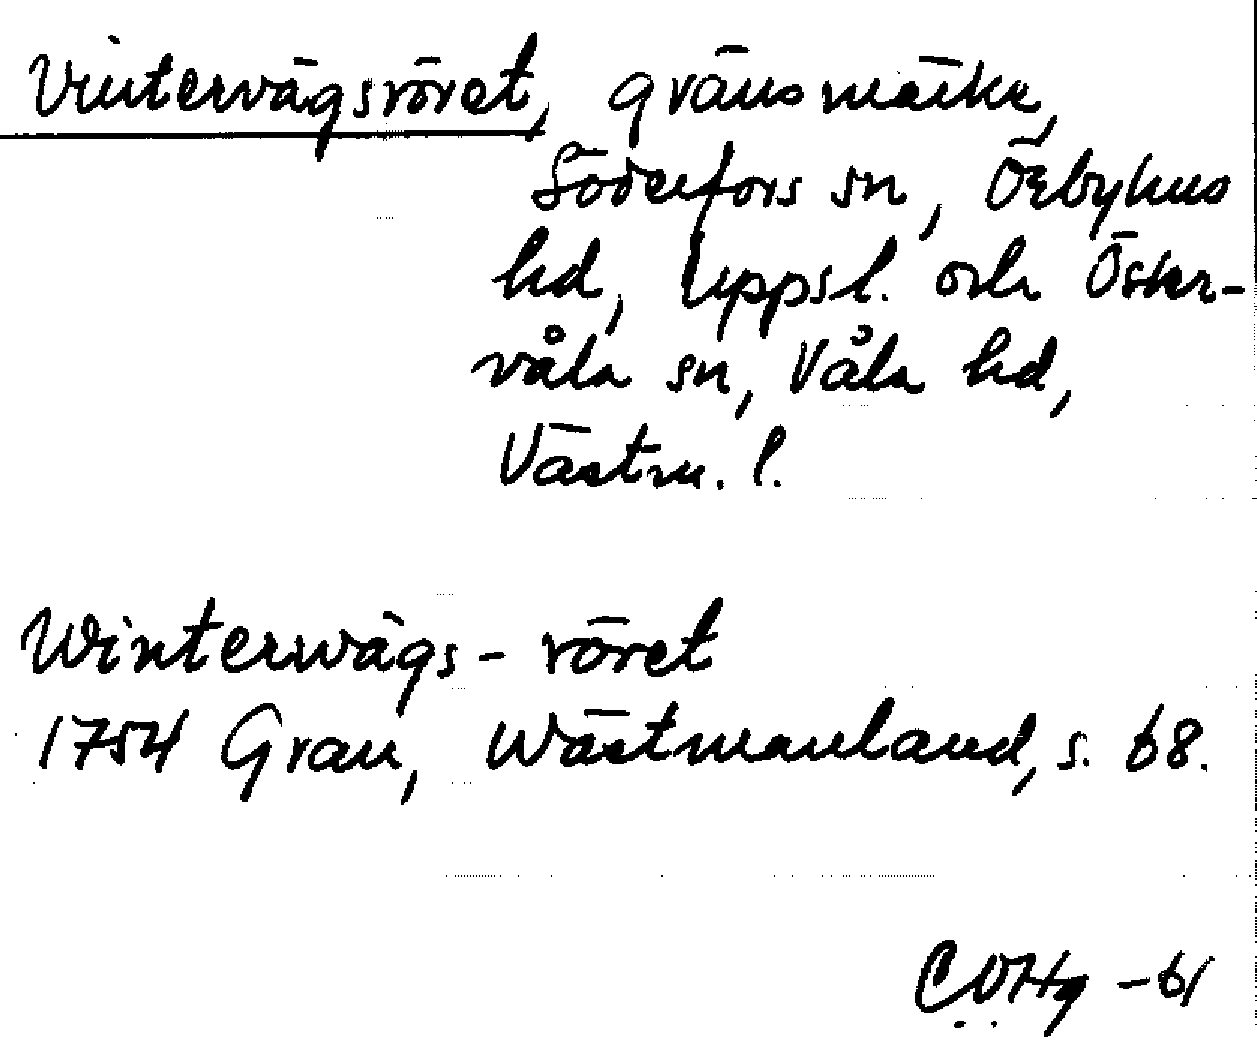 Vintervägsröret, gränsmärke,
Söderfors sn, Örbyhus
hd, Uppsl. och Öster-
våla sn, Våla hd,
Västm. l.
Winterwägs-röret
1754 Grau, Wästmanland, s. 68.
COHg -61